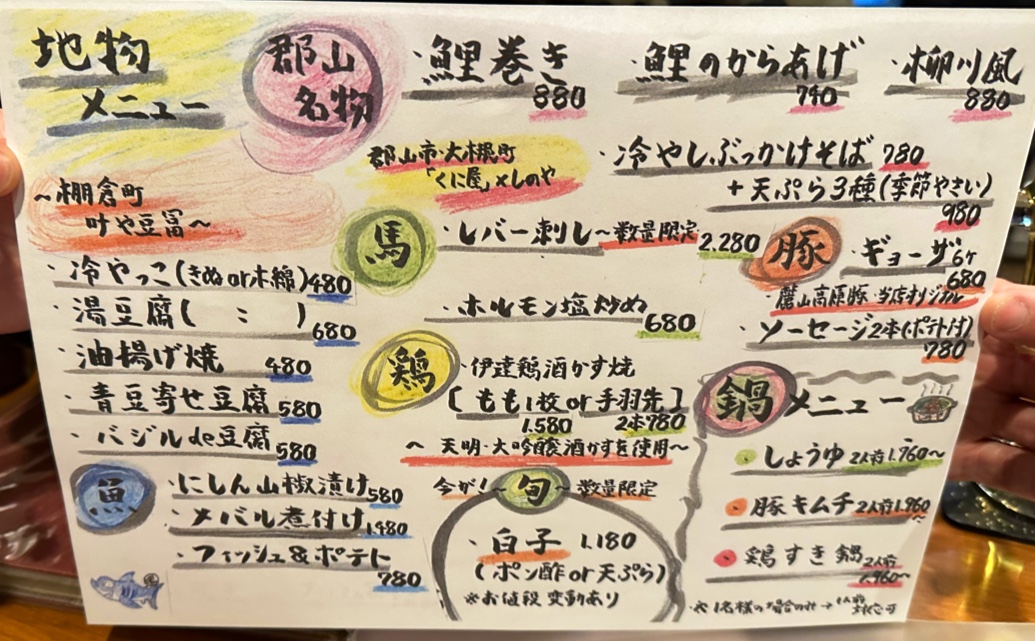 地物
メニュー
郡山
名物
・鯉巻き
880
鯉のからあげ
790
・柳川風
880
郡山市・大槻町
「くに屋」×しのや
・冷やしぶっかけそば 780
+天ぷら3種(季節やさい)
980
~棚倉町
叶や豆冨~
・冷やっこ(きぬor木綿)480
・湯豆腐( : )
680
・油揚げ焼 480
・青豆寄せ豆腐 580
・バジルde豆腐 580
馬
・レバー刺し~数量限定 2.280
・ホルモン塩炒め
680
豚
・ギョーザ6ヶ
680
・麓山高原豚 当店オリジナル
ソーセージ2本(ポテト付)
780
鶏
・伊達鶏酒かす焼
[もも1枚or手羽先]
1.580 2本780
~天明・大吟醸酒かすを使用~
魚
・にしん山椒漬け580
・メバル煮付け1.480
・フィッシュ&ポテト
780
今が!~旬~数量限定
・白子 1.180
(ポン酢or天ぷら)
※お値段変動あり
鍋メニュー
しょうゆ 2人前1.760~
・豚キムチ 2人前1.960
~
・鶏すき鍋 2人前
1.960~
※1名様の場合のみ→1人前
対応可